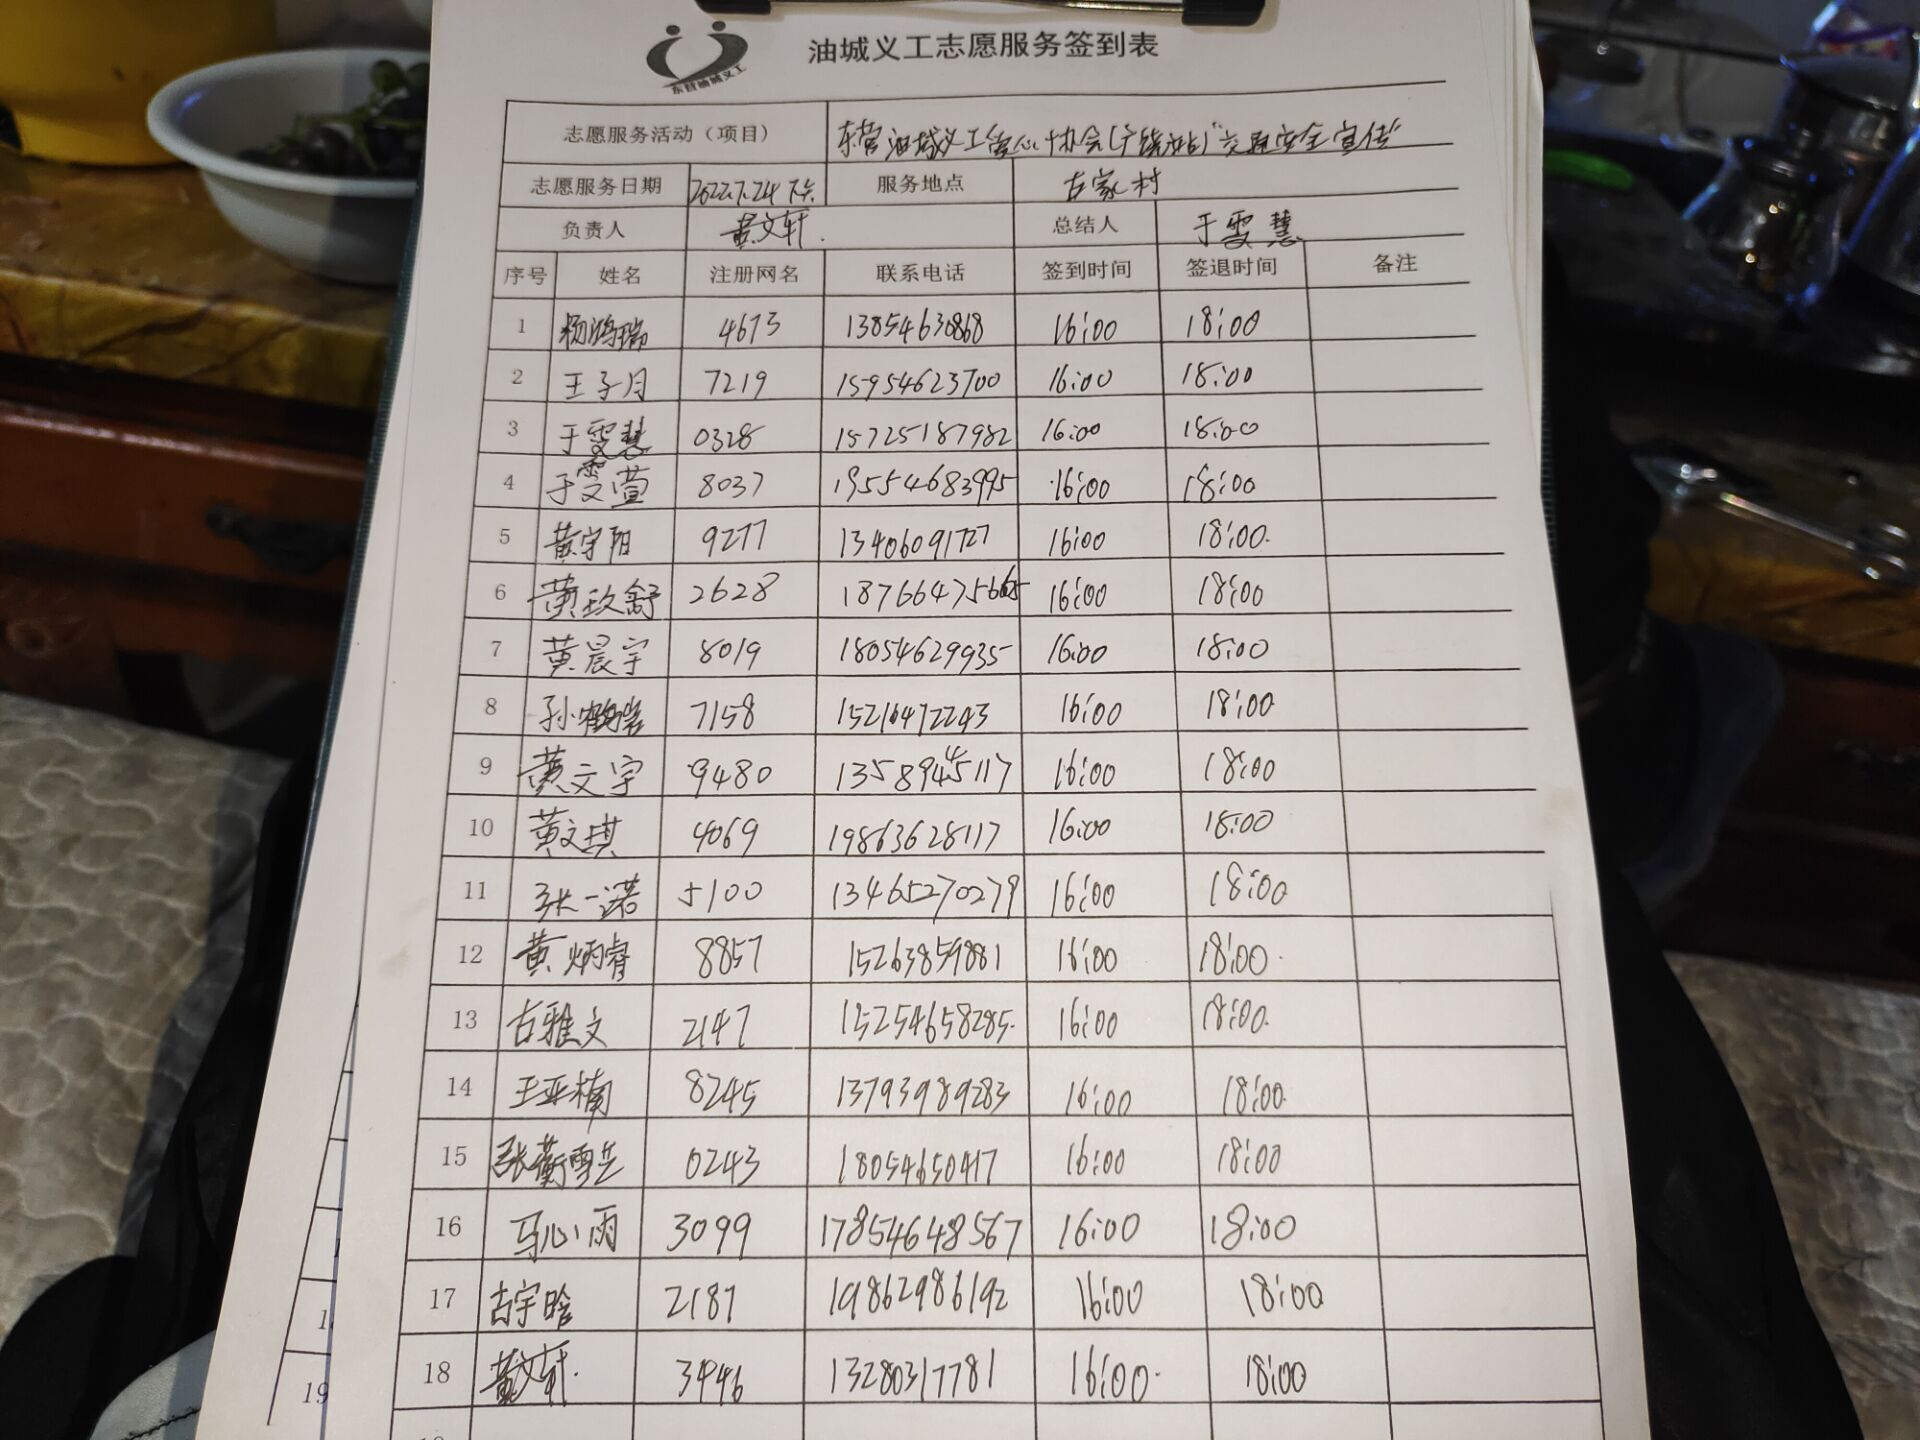 东营油城义工
油城义工志愿服务签到表
志愿服务活动（项目） 东营油城义工爱心协会(广饶站)"交通安全宣传"
志愿服务日期 2022.7.24 下午 服务地点 古家村
负责人 黄文轩. 总结人 于雯慧
序号 姓名 注册网名 联系电话 签到时间 签退时间 备注
1 杨鸿瑞 4673 13854630868 16:00 18:00
2 王子月 7219 15954623700 16:00 18:00
3 于雯慧 0328 15725187982 16:00 18:00
4 于雯萱 8037 19554683995 16:00 18:00
5 黄宇阳 9277 13406091727 16:00 18:00
6 黄玟舒 2628 16:00 18:00
7 黄晨宇 8019 18054629935 16:00 18:00
8 7158 15216472243 16:00 18:00
9 黄文宇 9480 16:00 18:00
10 黄文琪 4069 19863628117 16:00 18:00
11 张一诺 5100 13465270279 16:00 18:00
12 黄炳睿 8857 15263859881 16:00 18:00
13 古雅文 2147 15254658285 16:00 18:00
14 王亚楠 8245 13793989283 16:00 18:00
15 张蘅雪芝 0243 18054650417 16:00 18:00
16 马心雨 3099 17854648567 16:00 18:00
17 古宇晗 2187 19862986192 16:00 18:00
18 黄文轩. 3946 13280317781 16:00 18:00
19